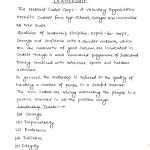 LEADERSHIP
The National Cadet Corps - A Voluntary Organisation
recruits Cadets from high School, Colleges and universities
all over India.
Qualities of leadership discipline, esprit-de-corps,
Courage and Confidence with a Secular outlook, which
are the essence of good citizens are inculcated in
Cadets through a well Conceived programme of Intensive
training Combined with adventure, Sports and outdoor
activities
In general, the leadership is referred to the quality of
handling a number of people, in a skillful manner.
The man makes his group members to
in a positive manner to set the positive ways.
Leadership Traits :-
(a) Courage
(b) Dependability
(c) Endurance
(d) Initiative
(e) Integrity